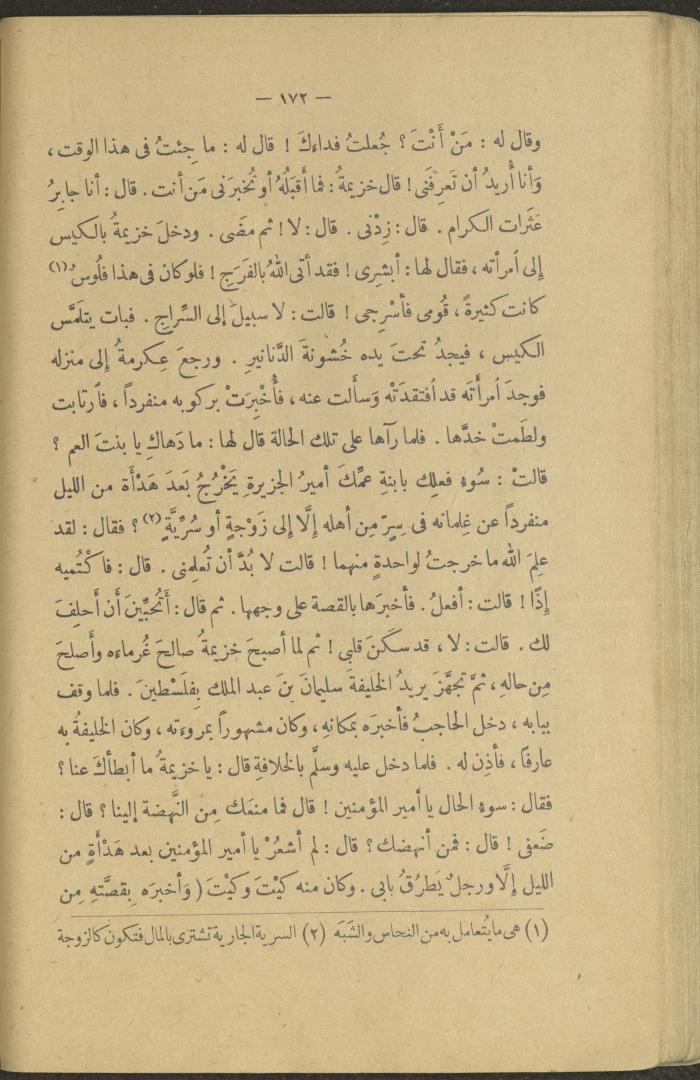 — ١٧٢ —
وقال له : مَنْ أَنْتَ ؟ جُعلتُ فداءكَ ! قال له : ما جِئتُ فى هذا الوقت ،
وَأنا أُريدُ أن تَعرِفَنى ! قال خزيمةُ : فما أَقبَلُهُ أو تُخبرَنى مَن أنت . قال : أنا جابِرُ
عَثَرات الكرام . قال : زِدْنى . قال : لا ! ثم مضَى . ودخلَ خزيمةُ بالكيس
إلى اُمرأته ، فقال لها : أبشِرى ! فقد أتى اللهُ بالفَرَجِ ! فلو كان فى هذا فلُوسٌ (١)
كانت كثيرةً ، قُومى فأسْرِجى ! قالت : لا سبيلَ إلى السِّراجِ . فبات يتلَمَّس
الكيس ، فيجدُ تحتَ يده خُشونةَ الدَّنانيرِ . ورجعَ عِكرمةُ إلى منزله
فوجدَ اُمرأتَه قد اُفتقدَتْه وَسأَلت عنه ، فأُخْبِرَتْ بركوبه منفرداً ، فاُرتابت
ولطَمتْ خدَّها . فلما رآها على تلك الحالة قال لها : ما دَهاكِ يا بنتَ العم ؟
قالتْ : سُوء فعلِك بابنةِ عمِّكَ أميرُ الجزيرةِ يَخْرُجُ بَعدَ هَدْأَة من الليل
منفرداً عن غِلمانه فى سِرّ مِن أهله إلَّا إلى زَوْجةٍ أو سُرِّيَّةٍ (٢) ؟ فقال : لقد
علِمَ الله ما خرجتُ لواحدةٍ منهما ! قالت لا بُدَّ أن تُعلِمنى . قال : فاكْتُميه
إذًا ! قالت : أفعلُ . فأخبرَها بالقصة على وجهها . ثم قال : أَتُحبِّينَ أَن أَحلِفَ
لك . قالت : لا ، قد سكَنَ قلبى ! ثم لما أصبحَ خزيمةُ صالحَ غُرماءه وأَصلحَ
مِن حالهِ ، ثمَّ تجهَّزَ يريدُ الخليفةَ سليمانَ بنَ عبد الملك بِفلَسْطينَ . فلما وقف
ببابه ، دخل الحاجبُ فأَخبرَه بمكانهِ ، وكان مشهوراً بمروءته ، وكان الخليفةُ به
عارفاً ، فأذِن له . فلما دخل عليه وسلَّم بالخلافةِ قال : يا خزيمةُ ما أبطأكَ عنا ؟
فقال : سوء الحال يا أمير المؤمنين ! قال فما منعَك مِن النَّهضة إلينا ؟ قال :
ضَعفى ! قال : فمن أنهضك ؟ قال : لم أشعُرْ يا أمير المؤمنين بعد هَدْأَةٍ من
الليل إلَّا ورجلٌ يَطرُقُ بابى . وكان منه كَيْتَ وكيْتَ ( وَأخبرَه بِقصَّتهِ مِن
(١) هى ما يُتعامل به من النحاس والشَبَه (٢) السرية الجارية تشترى بالمال فتكون كالزوجة